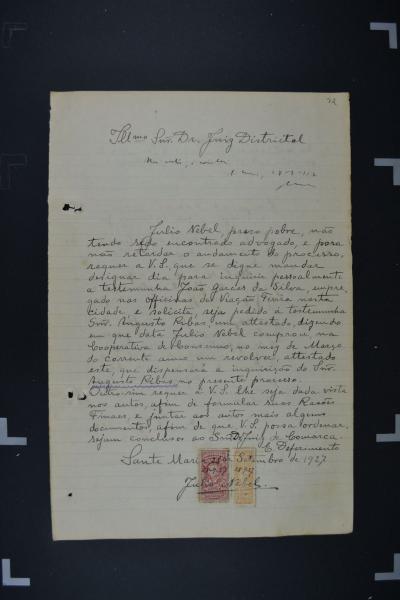 Illmo Snr. Dr. Juiz Districtal
Julio Nébel, preso pobre, não
tendo sido encontrado advogado, e para
não retardar o andamento do processo,
requer a V.S. que se digne mandar
designar dia para inquirir pessoalmente
a testemunha João Garces da Silva, empre-
gado nas officinas da Viação Ferrea nesta
cidade, e solicita, seja pedido á testemunha
Snr. Augusto Ribas, um attestado, dizendo
em que data Julio Nébel comprou, na
Cooperativa de Consumo, no mez de Março
do corrente anno um revolver, attestado
este, que dispensará a inquirição do Snr.
Augusto Ribas no presente processo.
Outro-sim requer a V.S. lhe seja dada vista
nos autos, afim de formular suas Razões
Finaes, e juntar aos autos mais alguns
documentos, afim de que V.S. possa ordenar,
sejam conclusos ao Snr. Dr. Juiz de Comarca.
E. Deferimento
Santa Maria de Setembro de 1927
Julio Nébel.